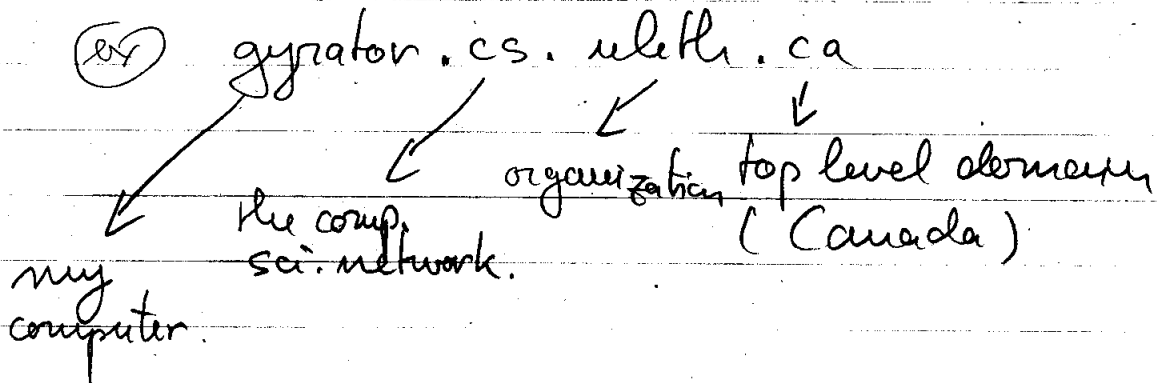 ex gyrator.cs.uleth.ca
organization top level domain
the comp. (Canada)
sci. network.
my
computer.